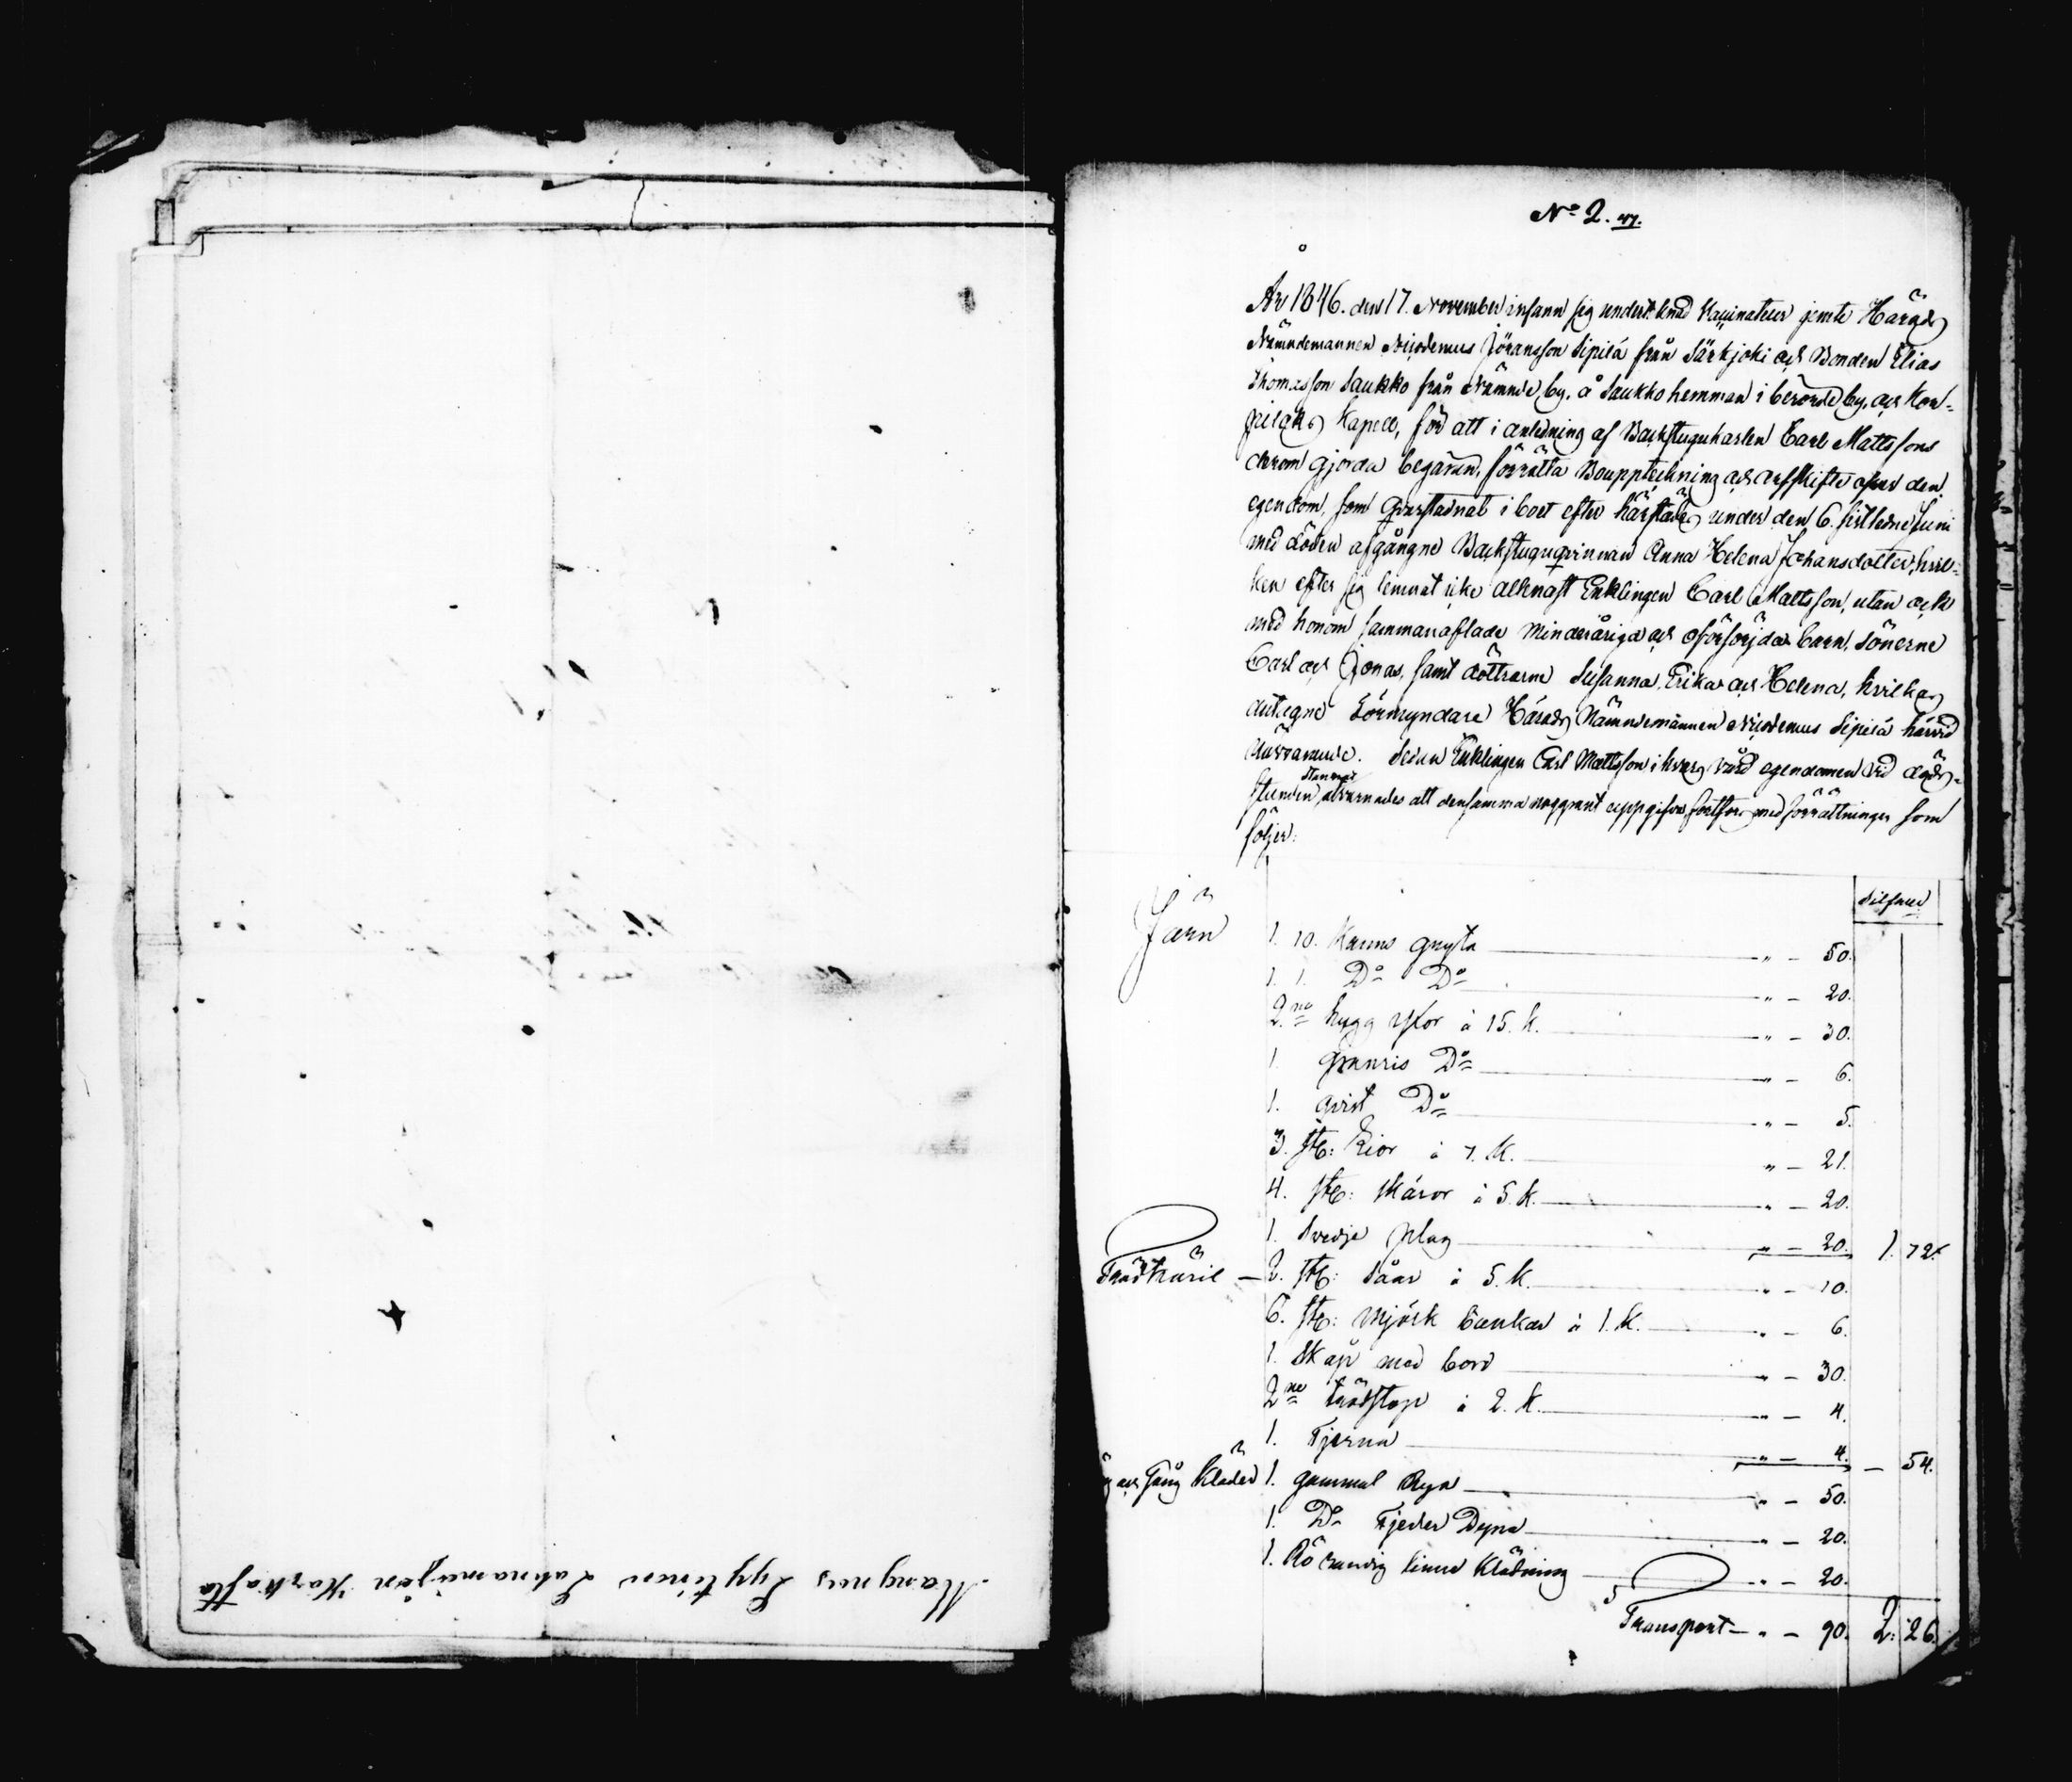 Mangnus Lyytinen Lahnameijän
N° 2. 47.
År 1846. den 17. November infann sig underteknad Vaccinateur jemte Härads
Nämndemannen Nicodemus Jöransson Sipilä från Särkjoki och Bonden Elias
Thomasson Saukko från nämnde by, å Saukko hemman i berörde by och Kor-
pilaks Kapell, för att i anledning af Backstugukarlen Carl Mattssons
derom gjorda begäran, förrätta Bouppteckning och arfskifte öfver den
egendom, som qvarstadnat i boet efter härstädes under den 6. sistledne Juni
med döden afgångne Backstuguqvinnan Anna Helena Johansdotter, hvil-
ken efter sig lemnat icke allenast Enklingen Carl Mattsson, utan ock
med honom sammanaflade minderåriga och oförsörjda barn, Sönerne
Carl och Jonas, samt döttrarne Susanna, Erika och Helena, hvilkas
antagne Förmyndare Härads Nämndemannen Nicodemus Sipilä härvid
närvarande. Sedan Enklingen Carl Mattsson i hvars vård egendomen vid döds-
stunden stannat, atvarnades att densamma noggrant uppgifva, fortfor med förrättningen som
följer:
Silfver
Järn 1. 10. Kanns gryta " - 50.
1. 1. D° D° " - 20.
2ne hugg yxor à 15. k. " - 30.
1. granris D° " - 6.
1. qvist D° " - 5.
3. st: Lior à 7. k. " - 21.
4. st: skäror à 5. k. " - 20.
1. Svedje plog " - 20. 1. 72.
Trädkäril - 2. st: Såar à 5. k. " - 10.
6. st: Mjölk bunkar à 1. k. " - 6.
1. Skåp med bord " - 30.
2ne trädstop à 2. k. " - 4.
1. Tjerna " - 4. - 54.
och Gång kläder 1. gammal Rya " - 50.
1. D° Fjeder Dyna " - 20.
1. Rö randig linne Klädning " - 20.
Transport - " - 90. 2. 26.